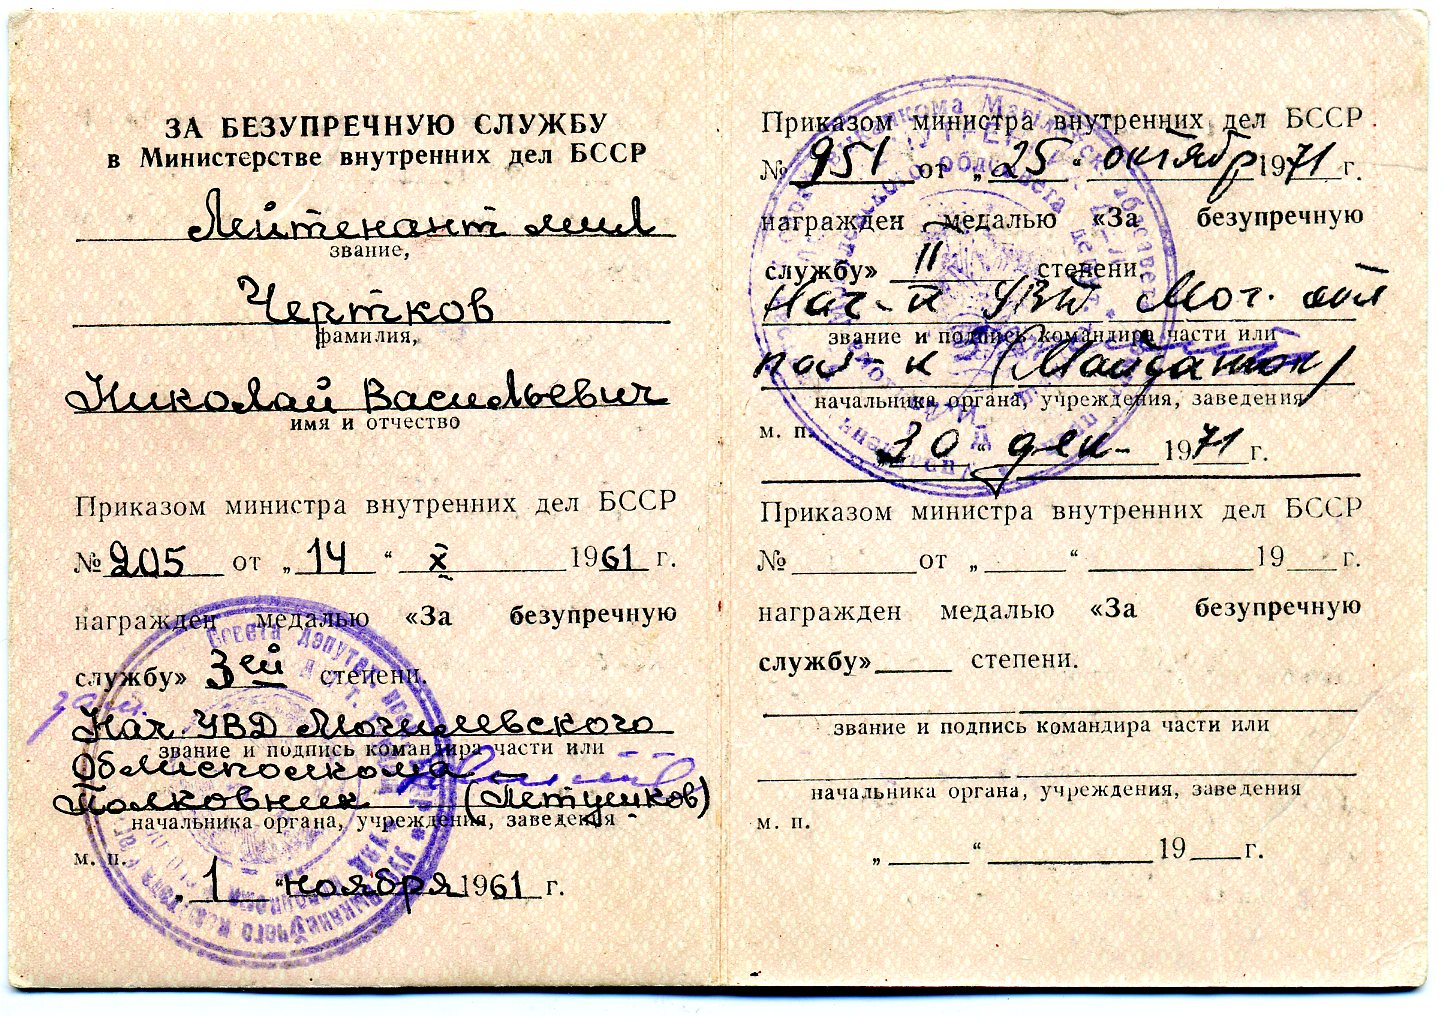 ЗА БЕЗУПРЕЧНУЮ СЛУЖБУ
в Министерстве внутренних дел БССР
Лейтенант мил
звание,
Чертков
фамилия,
Николай Васильевич
имя и отчество
Приказом министра внутренних дел БССР
№ 205 от „14“ X 1961 г.
награжден медалью «За безупречную
службу» 3ей степени.
Нач. УВД Могилевского
звание и подпись командира части или
Облисполкома
Полковник (Петушков)
начальника органа, учреждения, заведения
м. п.
„1“ ноября 1961 г.
Приказом министра внутренних дел БССР
№ 951 от „25“ октябр 1971 г.
награжден медалью «За безупречную
службу» II степени
Нач-к УВД Мог. обл
звание и подпись командира части или
пол-к
начальника органа, учреждения, заведения
м. п.
„30“ дек- 1971 г.
Приказом министра внутренних дел БССР
№ ______ от „____“ ________ 19___ г.
награжден медалью «За безупречную
службу» _____ степени.
звание и подпись командира части или
начальника органа, учреждения, заведения
м. п.
„____“ ________ 19___ г.